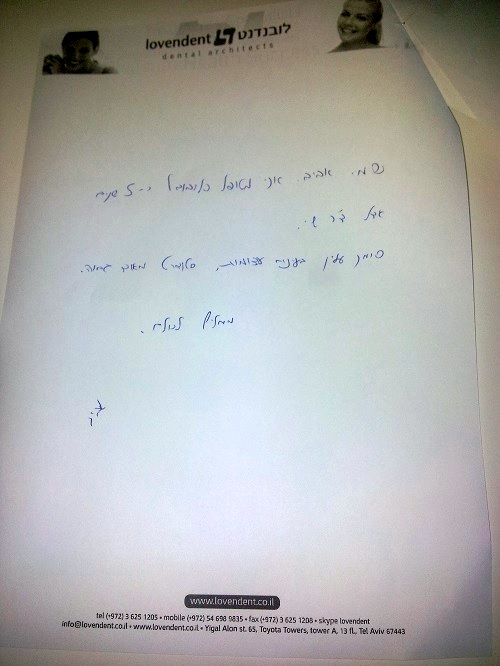 lovendent לובנדנט
dental architects
שמי אביב. אני מטופל בלובנדנט כ-5 שנים
אצל ד"ר שי.
סיפוק מאוד גבוהה.
ממליץ לכולם.
www.lovendent.co.il
tel (+972) 3 625 1205 • mobile (+972) 54 698 9835 • fax (+972) 3 625 1208 • skype lovendent
info@lovendent.co.il • www.lovendent.co.il • Yigal Alon st. 65, Toyota Towers, tower A, 13 fl., Tel Aviv 67443